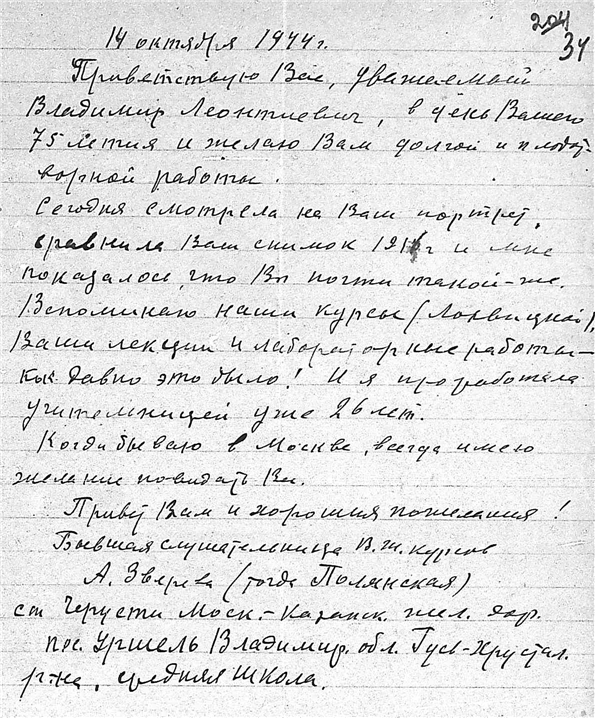 204
34
14 октября 1944 г.
Приветствую Вас, уважаемый
Владимир Леонтиевич, в день Вашего
75 летия и желаю Вам долгой и плодот-
ворной работы.
Сегодня смотрела на Ваш портрет,
сравнила Ваш снимок 1916 г и мне
показалось, что Вы почти такой-же.
Вспоминаю наши курсы (Лохвицкой),
Ваши лекции и лабораторные работы —
как давно это было! И я проработала
учительницей уже 26 лет.
Когда бываю в Москве, всегда имею
желание повидать Вас.
Привет Вам и хорошия пожелания!
Бывшая слушательница В. ж. курсов
А. Зверева (тогда Полянская)
ст. Черусти Моск.-Казанск. жел. дор.
пос. Уршель Владимир. обл. Гусь-Хрустал.
р-на, средняя школа.